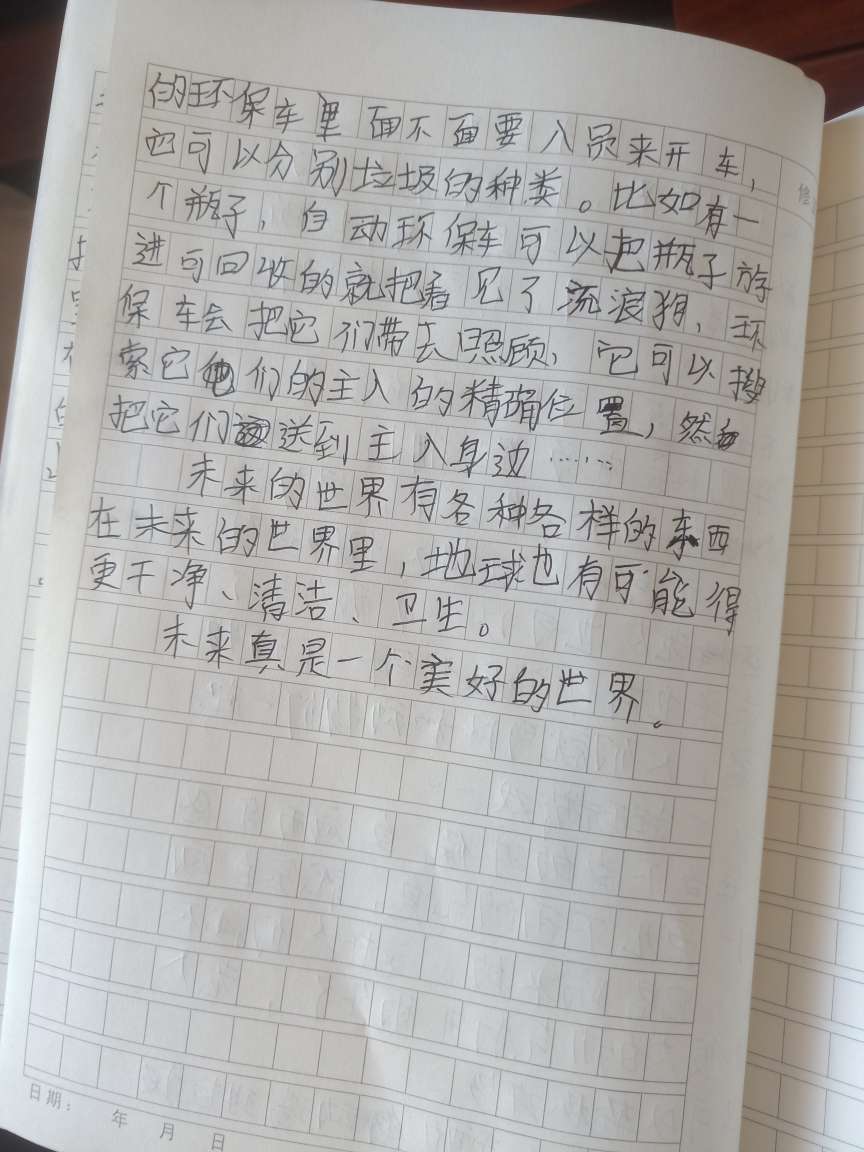 的环保车里面不面要人员来开车，
它可以分别垃圾的种类。比如有一
个瓶子，自动环保车可以把瓶子放
进可回收的就把看见了流浪狗，环
保车会把它们带去照顾，它可以搜
索它们的主人的精确位置，然
把它们送到主人身边……
未来的世界有各种各样的东西
在未来的世界里，地球也有可能得
更干净、清洁、卫生。
未来真是一个美好的世界。
日期： 年 月 日